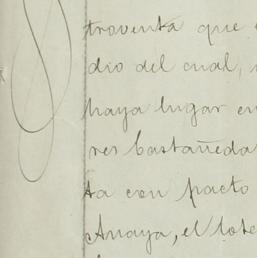 troventa que
dio del cual,
haya lugar en
res Castañeda
ta con pacto
Anaya, el lote